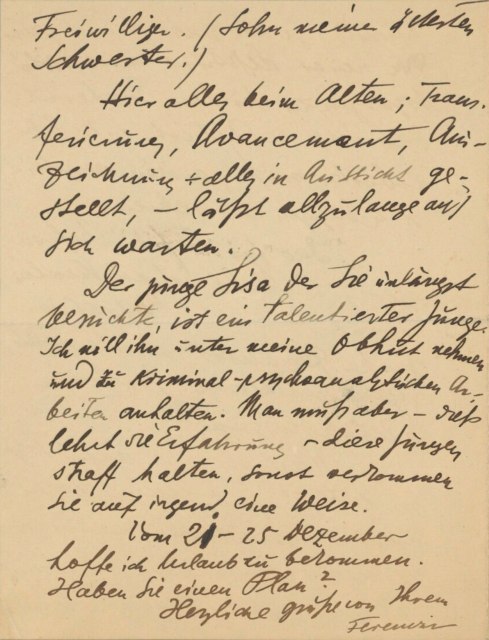 Freiwilliger. (Sohn meiner ältesten
Schwester.)
Hier alles beim Alten; Trans-
ferierung, Avancement, Aus-
zeichnung + alles in Aussicht ge-
stellt, – läßt allzulange auf
sich warten.
Der junge Sisa der Sie unlängst
besuchte, ist ein talentierter Junge.
Ich will ihn unter meine Obhut nehmen
und zu kriminal-psychoanalytischen Ar-
beiten anhalten. Man muß aber – dies
lehrt die Erfahrung – diese Jungen
straff halten, sonst verkommen
sie auf irgend eine Weise.
Vom 21 – 25 Dezember
hoffe ich Urlaub zu bekommen.
Haben Sie einen Plan?
Herzliche Grüße von Ihrem
Ferenczi